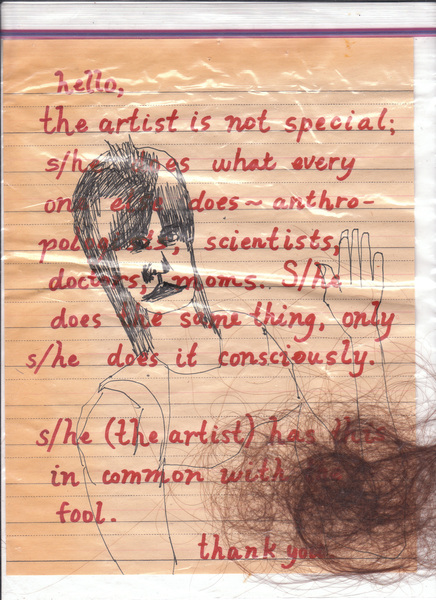 hello,
the artist is not special;
s/he does what every
one else does ~ anthro-
pologists, scientists,
doctors, moms. S/he
does the same thing, only
s/he does it consciously.
s/he (the artist) has this
in common with
fool.
thank you